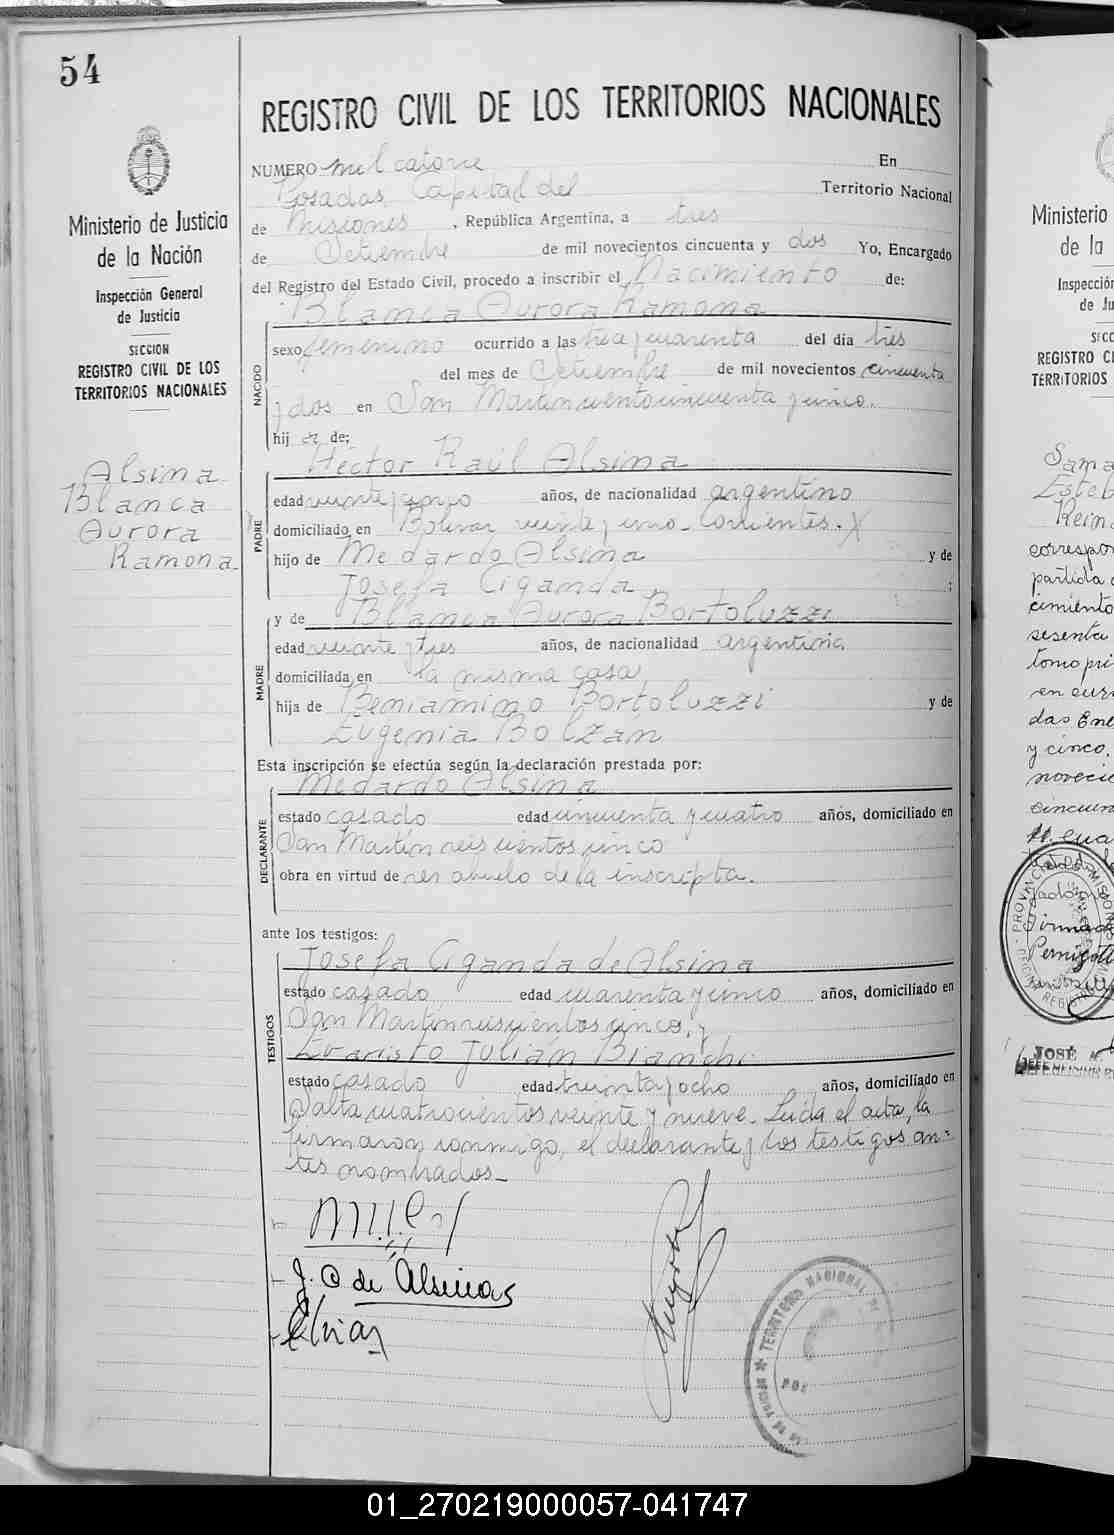 54
REGISTRO CIVIL DE LOS TERRITORIOS NACIONALES
Ministerio de Justicia
de la Nación
Inspección General
de Justicia
SECCION
REGISTRO CIVIL DE LOS
TERRITORIOS NACIONALES
Alsina
Blanca
Aurora
Ramona
NUMERO mil catorce En
Posadas, Capital del Territorio Nacional
de Misiones, República Argentina, a tres
de Setiembre de mil novecientos cincuenta y dos Yo, Encargado
del Registro del Estado Civil, procedo a inscribir el Nacimiento de:
Blanca Aurora Ramona
NACIDO
sexo femenino ocurrido a las trece y cuarenta del día tres
del mes de Setiembre de mil novecientos cincuenta
y dos en San Martin ciento cincuenta y cinco.
hij a de:
Héctor Raúl Alsina
PADRE
edad veinte y cinco años, de nacionalidad argentino
domiciliado en Bolivar veinte y uno - Corrientes. X
hijo de Medardo Alsina y de
Josefa Ciganda ;
y de Blanca Aurora Bortoluzzi
MADRE
edad veinte y tres años, de nacionalidad argentina
domiciliada en la misma casa
hija de Beniamino Bortoluzzi y de
Eugenia Bolzan
Esta inscripción se efectúa según la declaración prestada por:
Medardo Alsina
DECLARANTE
estado casado edad cincuenta y cuatro años, domiciliado en
San Martín seis cientos cinco
obra en virtud de ser abuelo de la inscripta.
ante los testigos:
Josefa Ciganda de Alsina
TESTIGOS
estado casado edad cuarenta y cinco años, domiciliado en
San Martin seiscientos cinco, y
Evaristo Julián Bianchi
estado casado edad treinta y ocho años, domiciliado en
Salta cuatrocientos veinte y nueve. Leída el acta, la
firmaron conmigo, el declarante y los testigos an-
tes nombrados-
J. C de Alsina
TERRITORIO NACIONAL DE
POS
Ministerio
de la
Inspección
de Ju
SECC
REGISTRO CI
TERRITORIOS
Sama
Esteb
Reina
correspon
partida d
cimiento
sesenta
tomo pri
en curs
das Ene
y cinco.
novecie
cincuen
JOSÉ
01_270219000057-041747